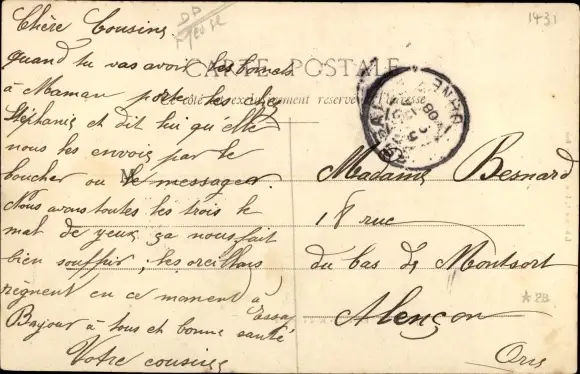 Chère Cousine.
quand tu vas avoir les bonnets
à Maman porte les chez
Stéphanie et dit lui qu'elle
nous les envois par le
boucher ou le messager.
Nous avons toutes les trois le
mal de yeux ça nous fait
bien souffrir, les oreillons
règnent en ce moment à
Essay
Bonjour à tous et bonne santé
Votre cousine
CARTE POSTALE
Côté exclusivement réservé à l'adresse
M
Madame Besnard
18 rue
du bas de Montsort
Alençon
Orne
1431
ORNE
08